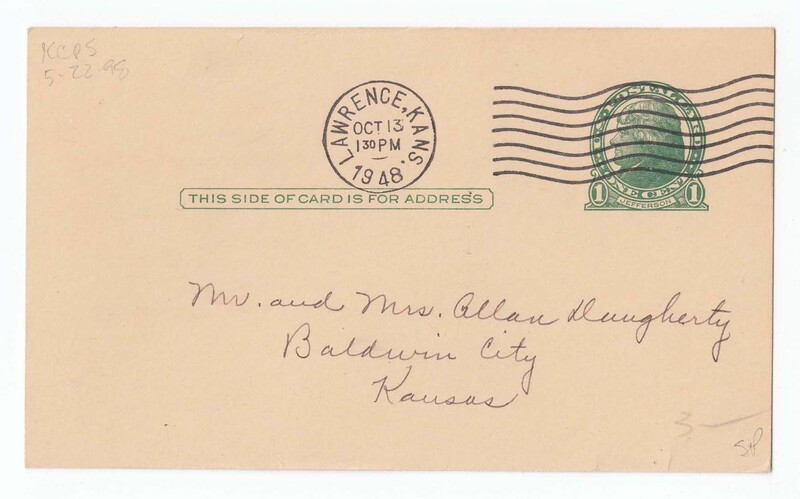 KCPS
5-22-98
LAWRENCE, KANS.
OCT 13
1 30 PM
1948
U.S. POSTAL CARD
1 ONE CENT 1
JEFFERSON
THIS SIDE OF CARD IS FOR ADDRESS
Mr. and Mrs. Allan Daugherty
Baldwin City
Kansas
3—